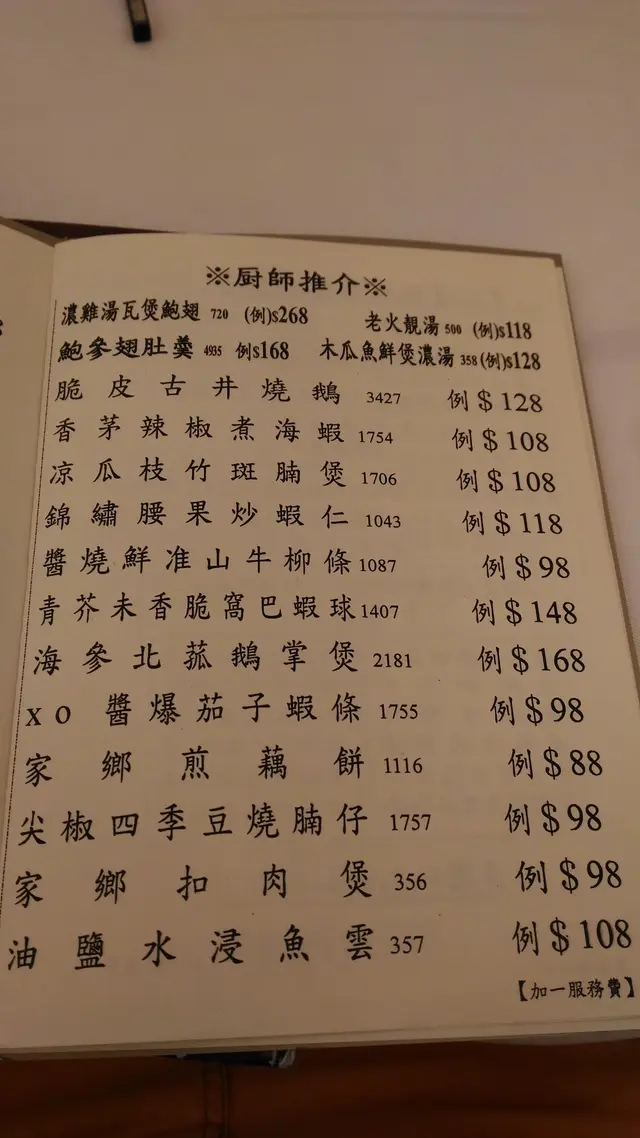 ※厨師推介※
濃雞湯瓦煲鮑翅 720 (例)$268 老火靚湯 500 (例)$118
鮑參翅肚羹 4935 例$168 木瓜魚鮮煲濃湯 358 (例)$128
脆皮古井燒鵝 3427 例$128
香茅辣椒煮海蝦 1754 例$108
凉瓜枝竹斑腩煲 1706 例$108
錦繡腰果炒蝦仁 1043 例$118
醬燒鮮准山牛柳條 1087 例$98
青芥末香脆窩巴蝦球 1407 例$148
海參北菰鵝掌煲 2181 例$168
xo 醬爆茄子蝦條 1755 例$98
家鄉煎藕餅 1116 例$88
尖椒四季豆燒腩仔 1757 例$98
家鄉扣肉煲 356 例$98
油鹽水浸魚雲 357 例$108
【加一服務費】